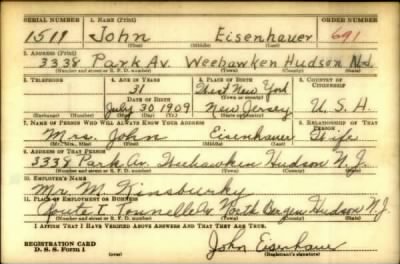 SERIAL NUMBER 1. NAME (Print) ORDER NUMBER
1511 John Eisenhauer 691
(First) (Middle) (Last)
2. ADDRESS (Print)
3338 Park Av. Weehawken Hudson N.J.
(Number and street or R. F. D. number) (Town) (County) (State)
3. TELEPHONE 4. AGE IN YEARS 5. PLACE OF BIRTH 6. COUNTRY OF CITIZENSHIP
31 West New York
(Town or county)
DATE OF BIRTH
July 30 1909 New Jersey U.S.A.
(Exchange) (No.) (Mo.) (Day) (Yr.) (State or country)
7. NAME OF PERSON WHO WILL ALWAYS KNOW YOUR ADDRESS 8. RELATIONSHIP OF THAT PERSON
Mrs. John Eisenhauer Wife
(Mr., Mrs., Miss) (First) (Middle) (Last)
9. ADDRESS OF THAT PERSON
3338 Park Av. Weehawken Hudson N.J.
(Number and street or R. F. D. number) (Town) (County) (State)
10. EMPLOYER'S NAME
Mr M.
11. PLACE OF EMPLOYMENT OR BUSINESS
Route 1 Tonnelle Av North Bergen Hudson N.J.
(Number and street or R. F. D. number) (Town) (County) (State)
I AFFIRM THAT I HAVE VERIFIED ABOVE ANSWERS AND THAT THEY ARE TRUE.
REGISTRATION CARD
D. S. S. Form 1
John Eisenhauer
(Registrant's signature)